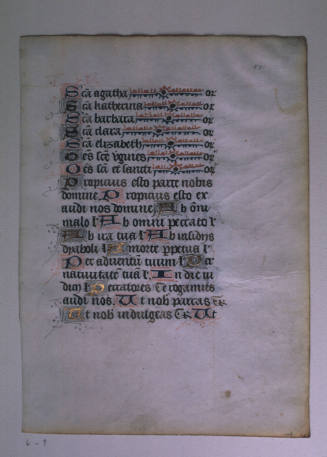 Sca agatha or
Sca katherina or
Sca barbara or
Sca clara or
Sca elizabeth or
Oēs scē v̄gines or
Oēs sc̄i et sancti or
Propicius esto parce nobis
domine. Propicius esto ex
audi nos domine. Ab om̄i
malo l Ab omni peccato l
Ab ira tua l Ab insidiis
dyaboli l morte perpetua l
Per adventū tuum l Per
nativitatē tuā l In die iu
dicii l Peccatores te rogamus
audi nos. Ut nob parcas te r
Ut nob indulgeas te r Ut